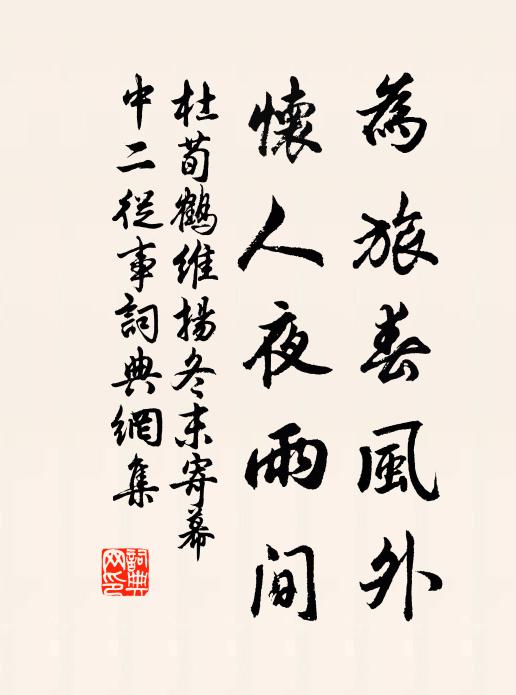 為旅春風外
懷人夜雨間
杜荀鶴維揚冬末寄幕
中二從事詞典網集
詞典
网印